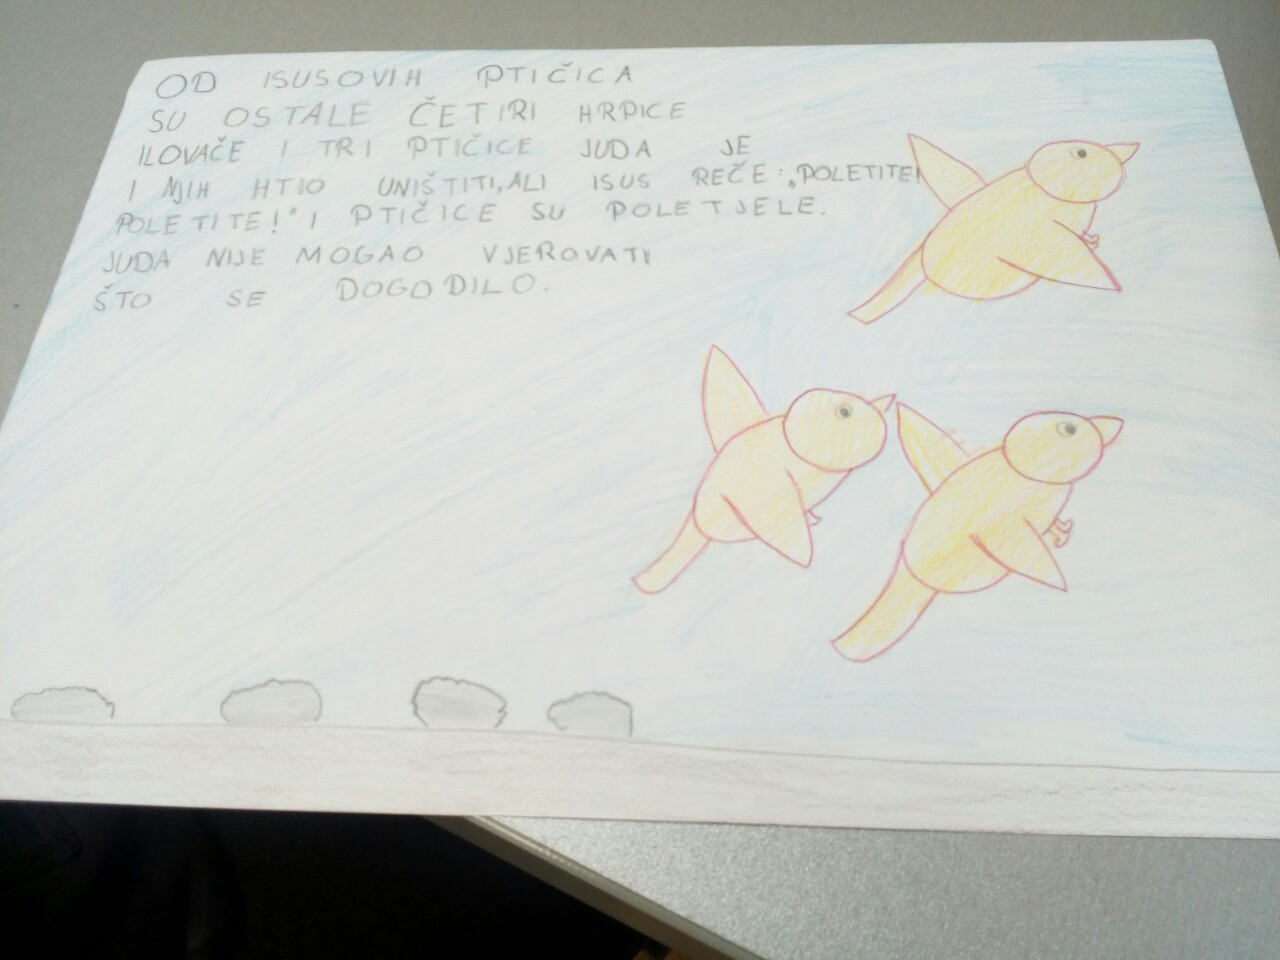 OD ISUSOVIH PTIČICA
SU OSTALE ČETIRI HRPICE
ILOVAČE I TRI PTIČICE JUDA JE
I NJIH HTIO UNIŠTITI, ALI ISUS REČE: „POLETITE!
POLETITE!" I PTIČICE SU POLETJELE.
JUDA NIJE MOGAO VJEROVATI
ŠTO SE DOGODILO.